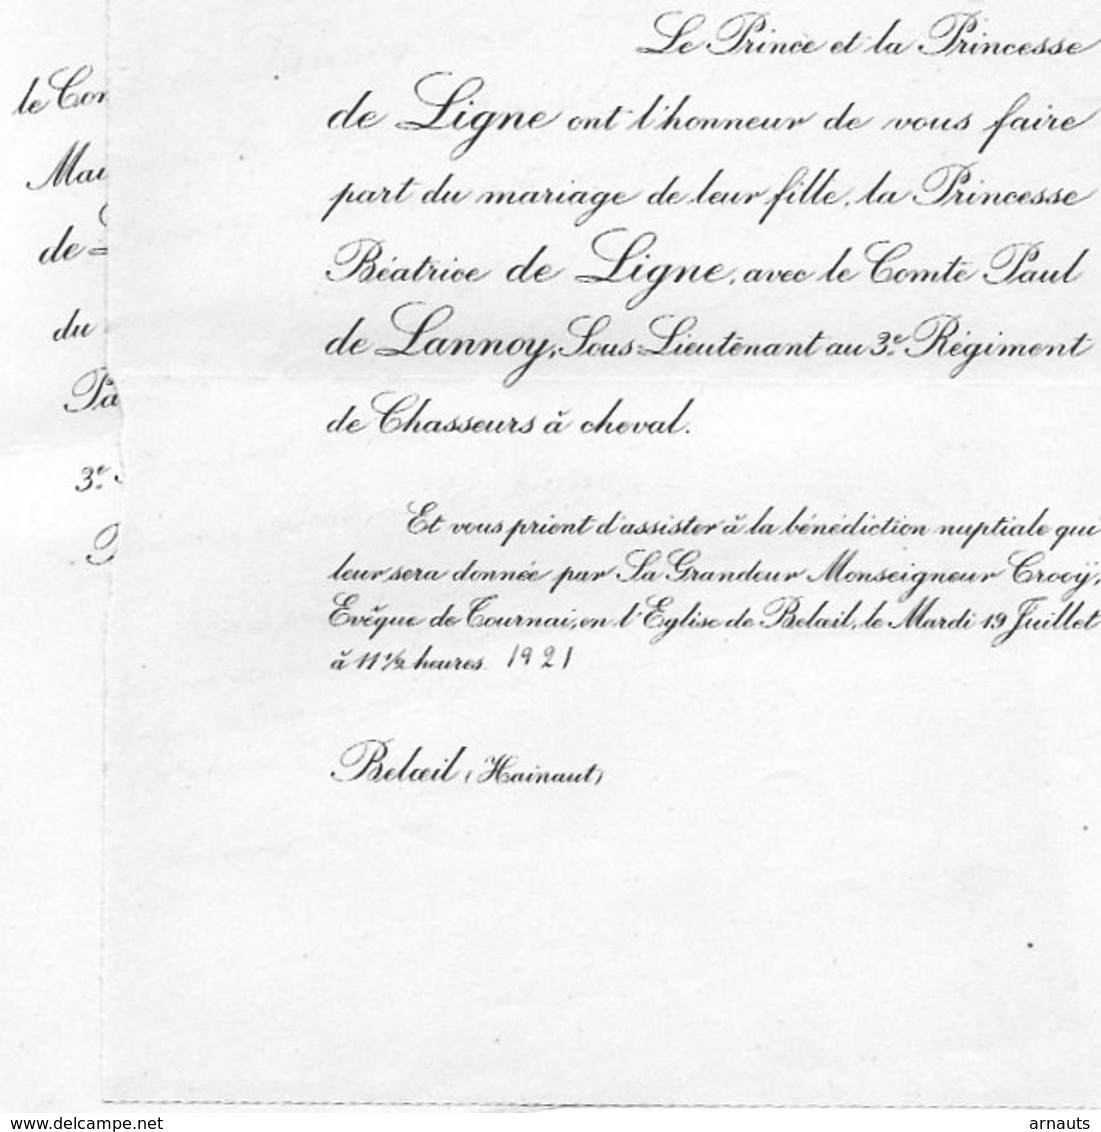 Le Prince et la Princesse
de Ligne ont l'honneur de vous faire
part du mariage de leur fille, la Princesse
Béatrice de Ligne, avec le Comte Paul
de Lannoy, Sous-Lieutenant au 3e. Régiment
de Chasseurs à cheval.
Et vous prient d'assister à la bénédiction nuptiale qui
leur sera donnée par Sa Grandeur Monseigneur Crooÿ,
Evêque de Tournai, en l'Eglise de Belœil, le Mardi 19 Juillet
à 11 1/2 heures. 1921
Belœil (Hainaut)
le Con
Mau
de
du
Pa
3e.
delcampe.net
arnauts